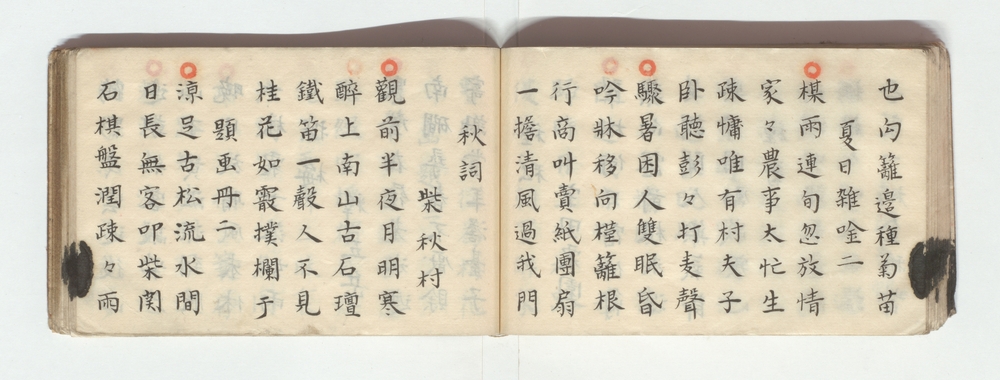 也向籬邊種菊苗
夏日雑唫二
楳雨連旬忽放情
家々農事太忙生
疎慵唯有村夫子
卧聽彭々打麦聲
驟暑困人雙眠昏
吟牀移向槿籬根
行商叫賣紙團扇
一擔清風過我門
秋詞
柴秋村
觀前半夜月明寒
醉上南山古石壇
鐵笛一聲人不見
桂花如霰撲欄于
題画丹二
涼足古松流水間
日長無客叩柴関
石棋盤潤疎々雨